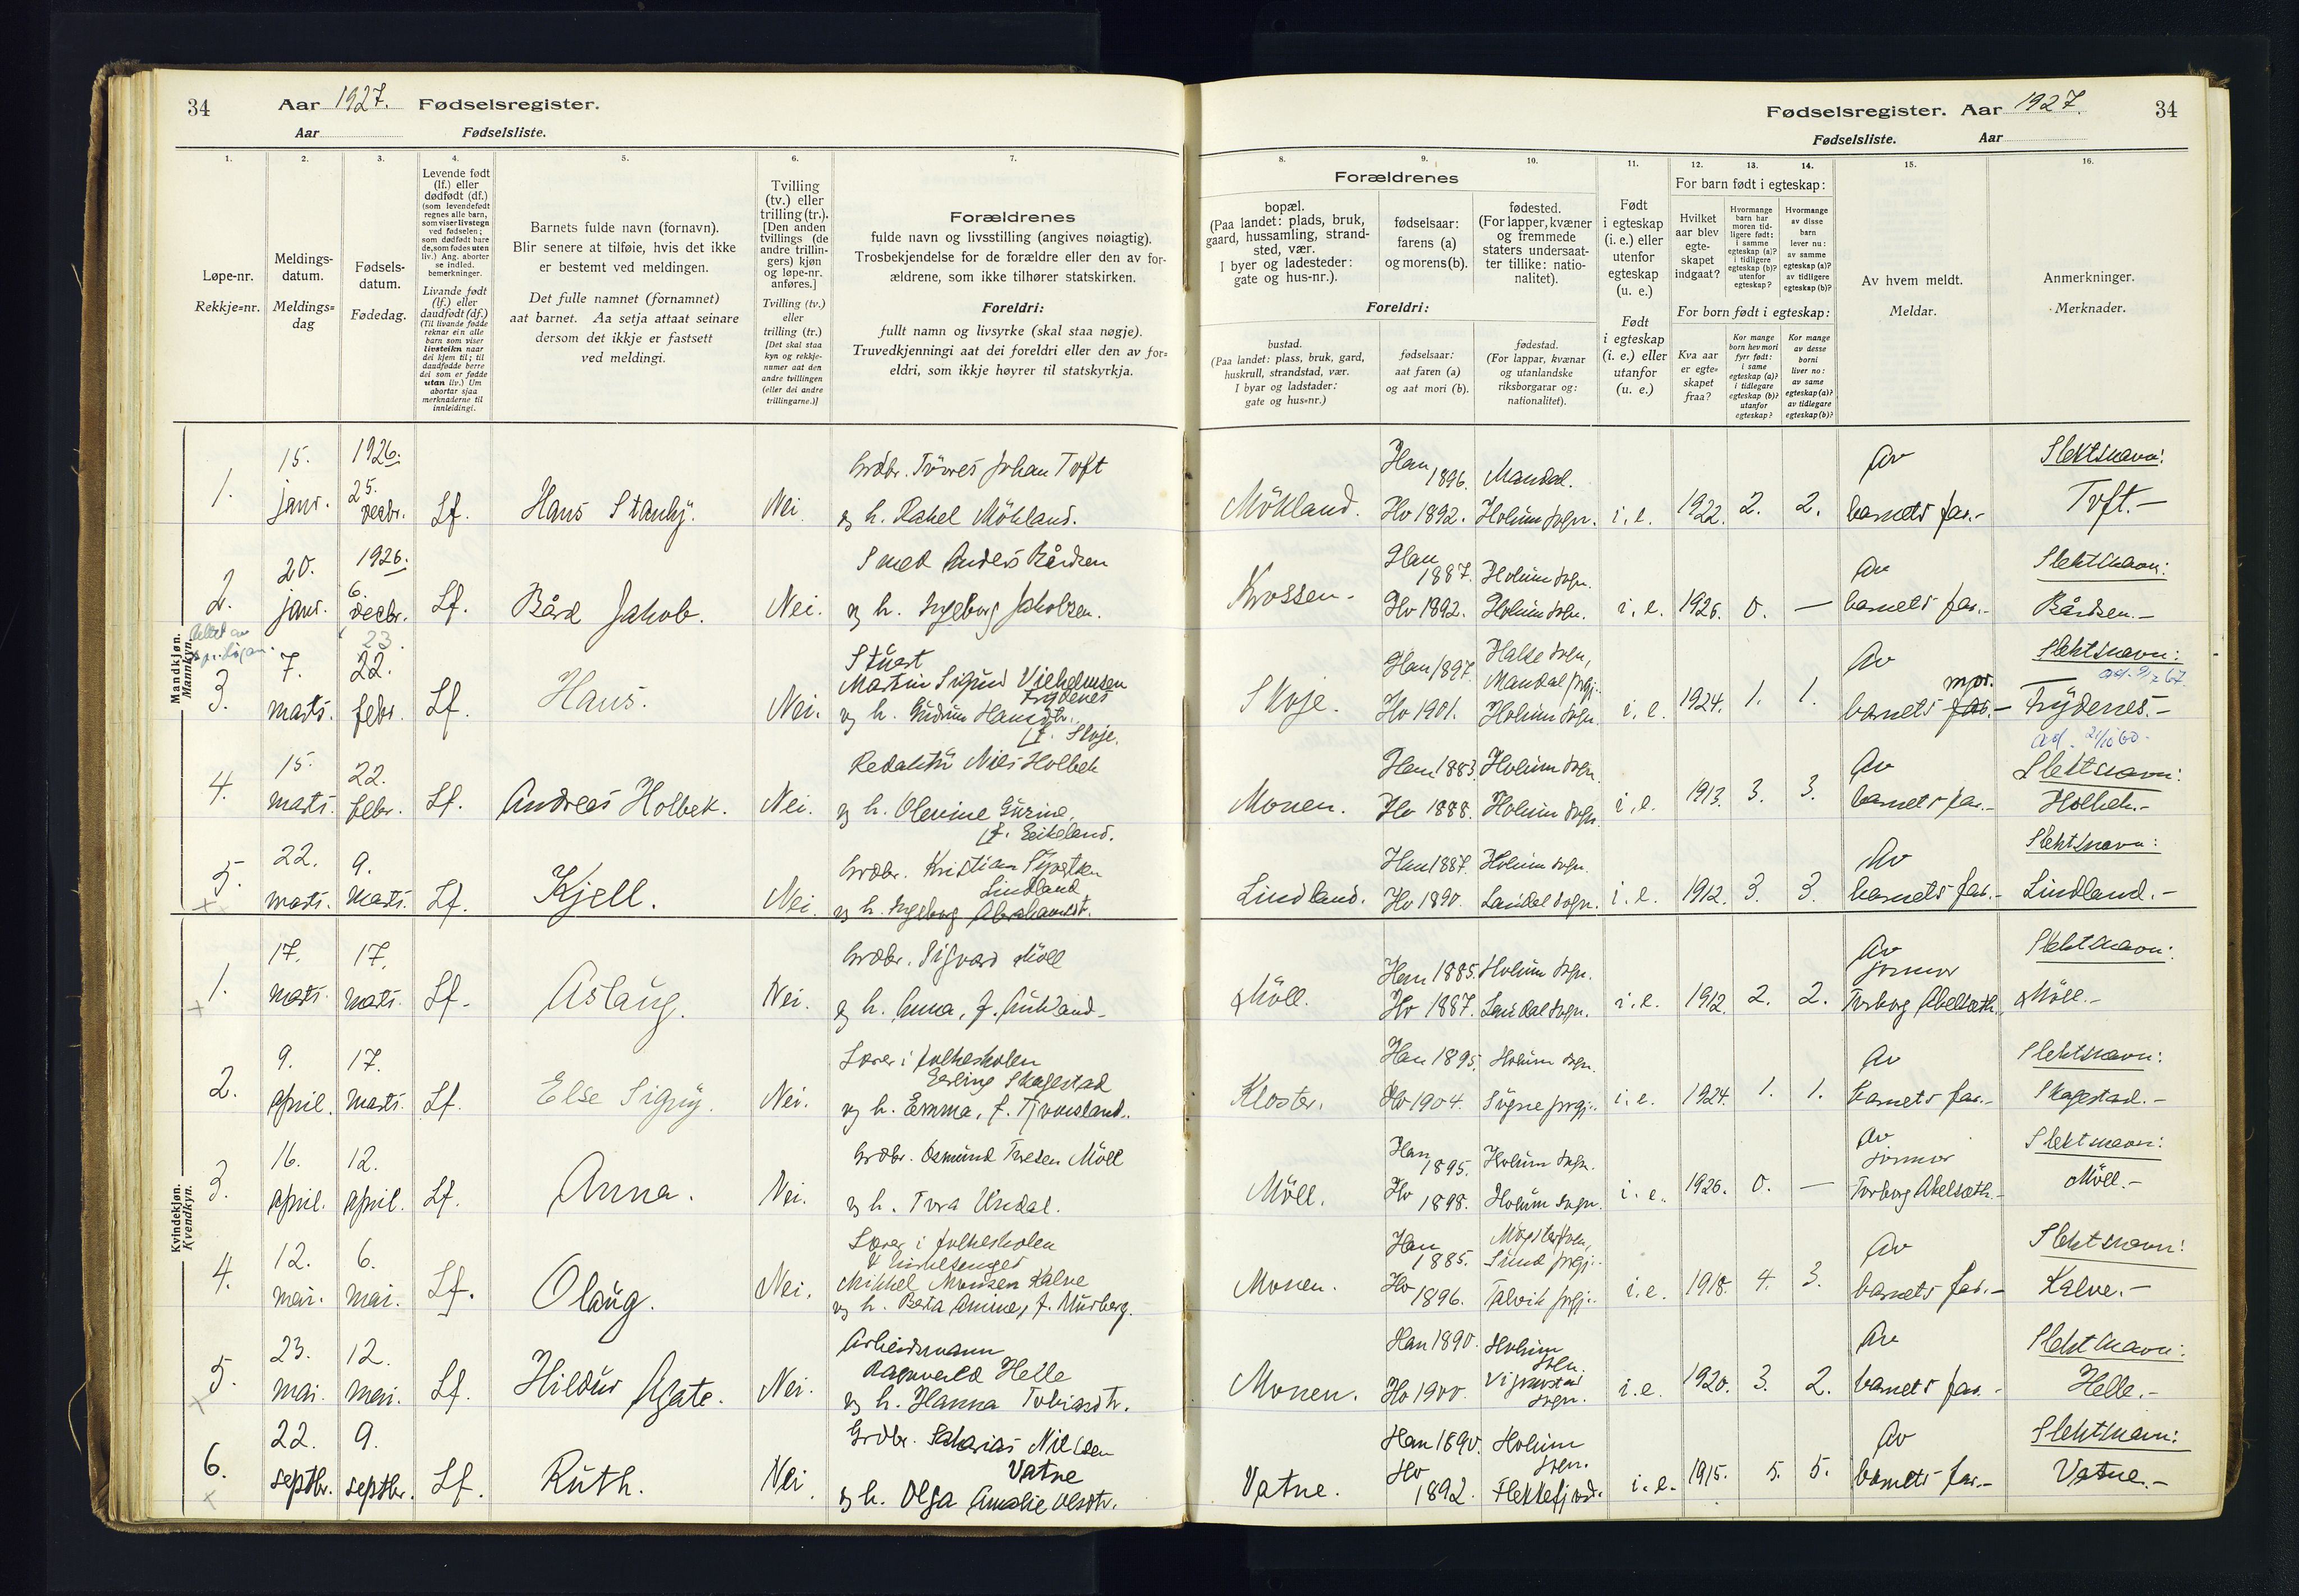 34 Aar 1927. Fødselsregister.
Aar Fødselsliste.
Fødselsregister. Aar 1927. 34
Fødselsliste. Aar
1. 2. 3. 4. 5. 6. 7.
Løpe-nr.
Rekkje=nr.
Meldings-
datum.
Meldings=
dag
Fødsels-
datum.
Fødedag.
Levende født
(lf.) eller
dødfødt (df.)
(som levendefødt
regnes alle barn,
som viser livstegn
ved fødselen;
som dødfødt bare
de, som fødes uten
liv.) Ang. aborter
se indled.
bemerkninger.
Livande født
(lf.) eller
daudfødt (df.)
(Til livande fødde
reknar ein alle
barn som viser
livsteikn naar
dei kjem til; til
daudfødde berre
dei som er fødde
utan liv.) Um
abortar sjaa
merknaderne til
innleidingi.
Barnets fulde navn (fornavn).
Blir senere at tilføie, hvis det ikke
er bestemt ved meldingen.
Det fulle namnet (fornamnet)
aat barnet. Aa setja attaat seinare
dersom det ikkje er fastsett
ved meldingi.
Tvilling
(tv.) eller
trilling (tr.).
[Den anden
tvillings (de
andre trillin-
gers) kjøn
og løpe-nr.
anføres.]
Tvilling (tv.)
eller
trilling (tr.)
[Det skal staa
kyn og rekkje-
numer aat den
andre tvillingen
(eller dei andre
trillingarne.)]
Forældrenes
fulde navn og livsstilling (angives nøiagtig).
Trosbekjendelse for de forældre eller den av for-
ældrene, som ikke tilhører statskirken.
Foreldri:
fullt namn og livsyrke (skal staa nøgje).
Truvedkjenningi aat dei foreldri eller den av for=
eldri, som ikkje høyrer til statskyrkja.
8. 9. 10. 11. 12. 13. 14. 15. 16.
Forældrenes
bopæl.
(Paa landet: plads, bruk,
gaard, hussamling, strand-
sted, vær.
I byer og ladesteder:
gate og hus-nr.).
fødselsaar:
farens (a)
og morens (b).
fødested.
(For lapper, kvæner
og fremmede
staters undersaat-
ter tillike: natio-
nalitet).
Foreldri:
bustad.
(Paa landet: plass, bruk, gard,
huskrull, strandstad, vær.
I byar og ladstader:
gate og hus=nr.)
fødselsaar:
aat faren (a)
og aat mori (b).
fødestad.
(For lappar, kvænar
og utanlandske
riksborgarar og:
nationalitet).
Født
i egteskap
(i. e.) eller
utenfor
egteskap
(u. e.)
Født
i egteskap
(i. e.) eller
utanfor
(u. e.)
For barn født i egteskap:
Hvilket
aar blev
egte-
skapet
indgaat?
Hvormange
barn har
moren tid-
ligere født:
i samme
egteskap (a)?
i tidligere
egteskap (b)?
utenfor
egteskap?
Hvormange
av disse
barn
lever nu:
av samme
egteskap (a)?
av tidligere
egteskap (b)?
For born født i egteskap:
Kva aar
er egte=
skapet
fraa?
Kor mange
born hev mori
fyrr født:
i same
egteskap (a)?
i tidlegare
egteskap (b)?
utanfor
egteskap?
Kor mange
av desse
borni
liver no:
av same
egteskap (a)?
av tidlegare
egteskap (b)?
Av hvem meldt.
Meldar.
Anmerkninger.
Merknader.
Mandkjøn.
Mannkyn.
1. 15. janr. 1926. 25. decbr. Lf. Hans Stanly. Nei. Grdbr. Törres Johan Toft
og h. Rakel Mökland.
Mökland. Han 1896. Mandal.
Hv 1892. Holum sogn. i. e. 1922. 2. 2. Av barnets far.- Slektsnavn: Toft.-
2. 20. janr. 1926. 6. decbr. Lf. Bård Jakob. Nei. Smed Anders Bårdsen
og h. Ingeborg Jakobsen.
Krossen. Han 1887. Holum sogn.
Hv 1892. Holum sogn. i. e. 1926. 0. — Av barnets far.- Slektsnavn: Bårdsen.-
3. 7. marts. 23. 22. febr. Lf. Hans. Nei. Stuert
Martin Sigurd Vilhelmsen
Frydenes
og h. Gudrun Hansdtr.
f. Skoje.
Skoje. Han 1897. Halse sogn,
Mandal prgj.
Hv 1901. Holum sogn. i. e. 1924. 1. 1. Av barnets far.- mor. Slektsnavn: Frydenes.-
4. 15. marts. 22. febr. Lf. Andreas Holbek. Nei. Redaktör Niels Holbek
og h. Olevine Gurine,
f. Eikeland.
Monen. Han 1883. Holum sogn.
Hv 1888. Holum sogn. i. e. 1913. 3. 3. Av barnets far.- Slektsnavn: Holbek.-
5. 22. marts. 9. marts. Lf. Kjell. Nei. Grdbr. Kristian
Lindland
og h. Ingeborg Abrahamsdt.
Lindland. Han 1887. Holum sogn.
Hv 1890. Laudal sogn. i. e. 1912. 3. 3. Av barnets far.- Slektsnavn: Lindland.-
Kvindekjøn.
Kvendkyn.
1. 17. marts. 17. marts. Lf. Aslaug. Nei. Grdbr. Sigvard Möll
og h. Anna, f. Aukland.
Möll. Han 1885. Holum sogn.
Hv 1887. Laudal sogn. i. e. 1912. 2. 2. Av jormor Torborg Abelseth. Slektsnavn: Möll.-
2. 9. april. 17. marts. Lf. Else Signy. Nei. Lærer i folkeskolen
Erling Skagestad
og h. Emma, f. Tjomsland.
Kloster. Han 1895. Holum sogn.
Hv 1904. Sögne prgj. i. e. 1924. 1. 1. Av barnets far.- Slektsnavn: Skagestad.-
3. 16. april. 12. april. Lf. Anna. Nei. Grdbr. Osmund Tresen Möll
og h. Tora Undal.
Möll. Han 1895. Holum sogn.
Hv 1898. Holum sogn. i. e. 1926. 0. — Av jormor Torborg Abelseth.- Slektsnavn: Möll.-
4. 12. mai. 6. mai. Lf. Olaug. Nei. Lærer i folkeskolen
& kirkesanger
Mikkel Monsen Kalve
og h. Berta Amine, f. Murberg.
Monen. Han 1885. Sund prgj.
Hv 1896. Talvik prgj. i. e. 1918. 4. 3. Av barnets far.- Slektsnavn: Kalve.-
5. 23. mai. 12. mai. Lf. Hildur Agate. Nei. Arbeidsmann
Ragnvald Helle
og h. Hanna Tobiasdtr.
Monen. Han 1890. Holum sogn.
Hv 1900. Vigmostad sogn. i. e. 1920. 3. 2. Av barnets far.- Slektsnavn: Helle.-
6. 22. septbr. 9. septbr. Lf. Ruth. Nei. Grdbr. Sakarias Nilsen
Vatne
og h. Olga Amalie Olsdtr.
Vatne. Han 1890. Holum sogn.
Hv 1892. Flekkefjord. i. e. 1915. 5. 5. Av barnets far.- Slektsnavn: Vatne.-